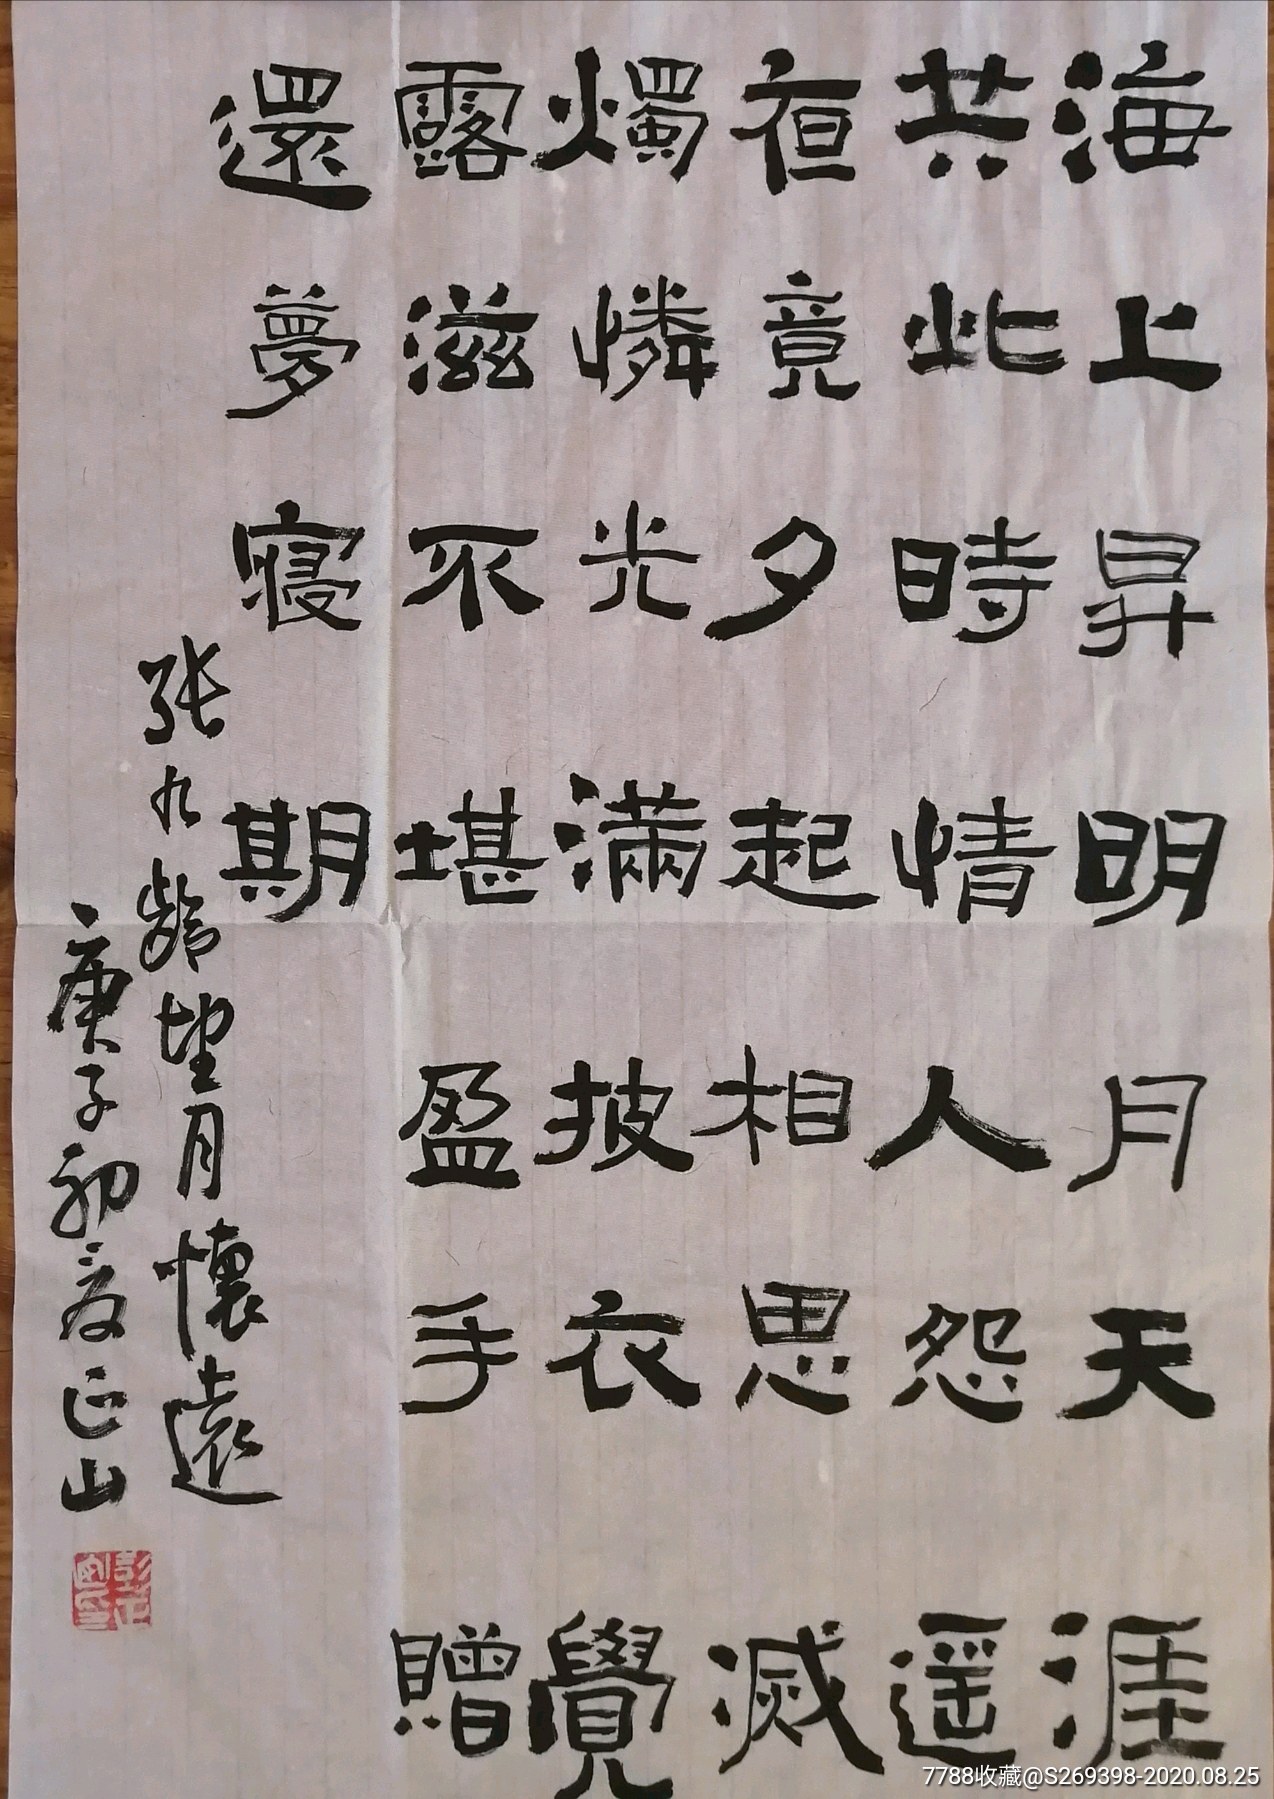 海上昇明月天涯
共此時情人怨遥
夜竟夕起相思滅
燭憐光滿披衣覺
露滋不堪盈手贈
還夢寢期
张九龄望月懷遠
庚子初夏正山
7788收藏@S269398-2020.08.25